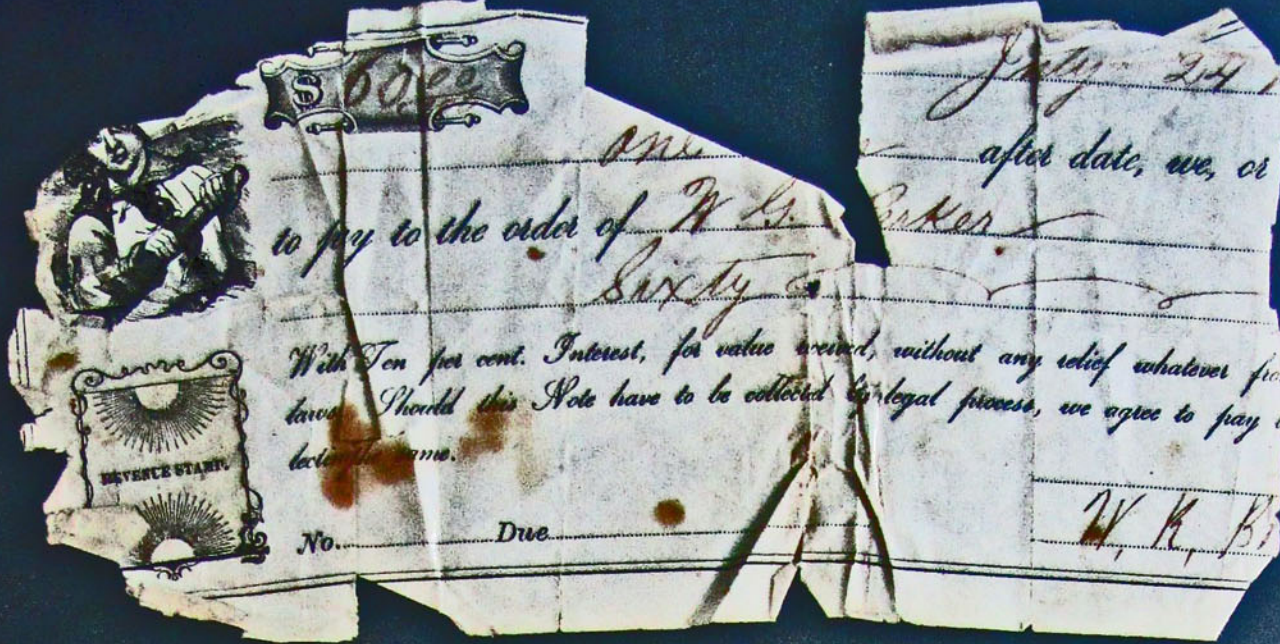 $ 60.00
July 24
one after date, we, or
to pay to the order of W G.
Sixty
With Ten per cent. Interest, for value received, without any relief whatever
laws. Should this Note have to be collected by legal process, we agree to pay
REVENUE STAMP.
No. Due
W. K.